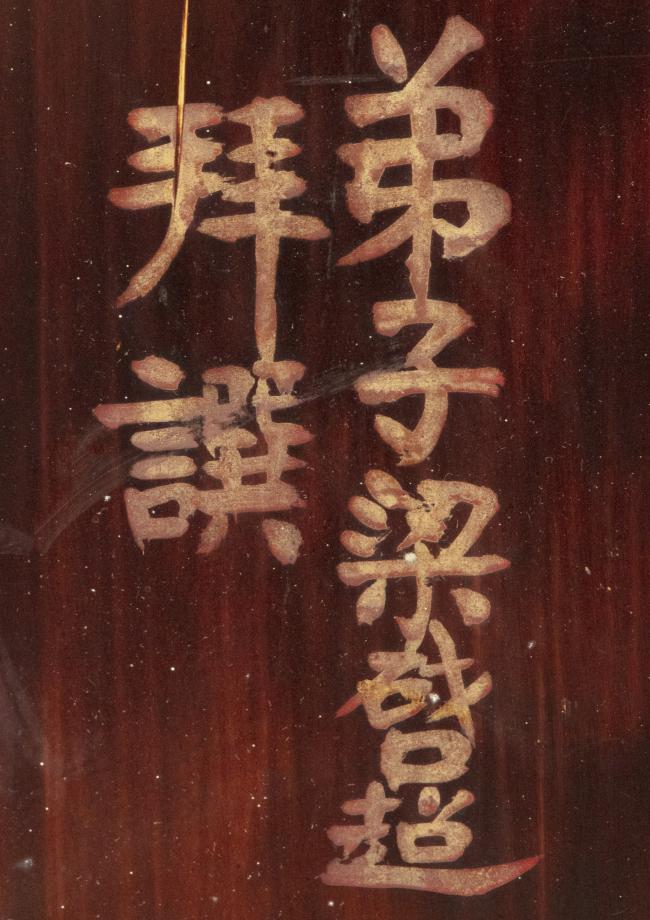 弟子梁啓超
拜譔